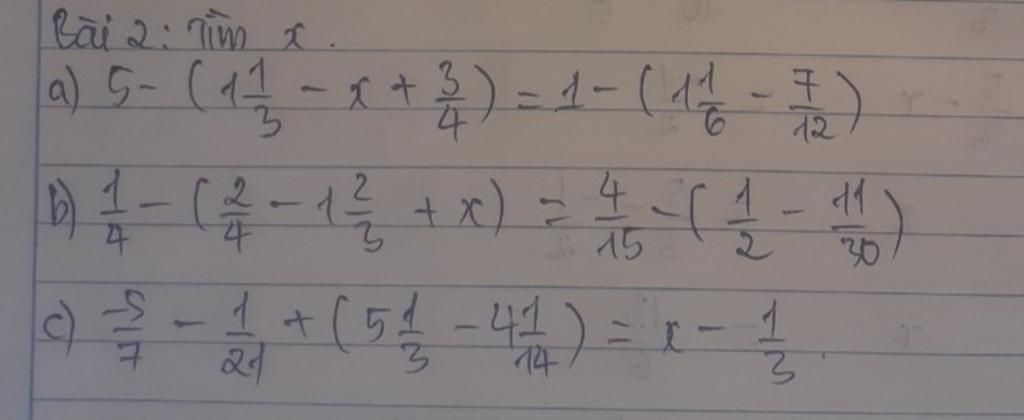 Bài 2: Tìm x.
a) 5 - (1 1/3 - x + 3/4) = 1 - (1 1/6 - 7/12)
b) 1/4 - (2/4 - 1 2/3 + x) = 4/15 - (1/2 - 11/30)
c) -5/7 - 1/21 + (5 1/3 - 4 1/14) = x - 1/3.